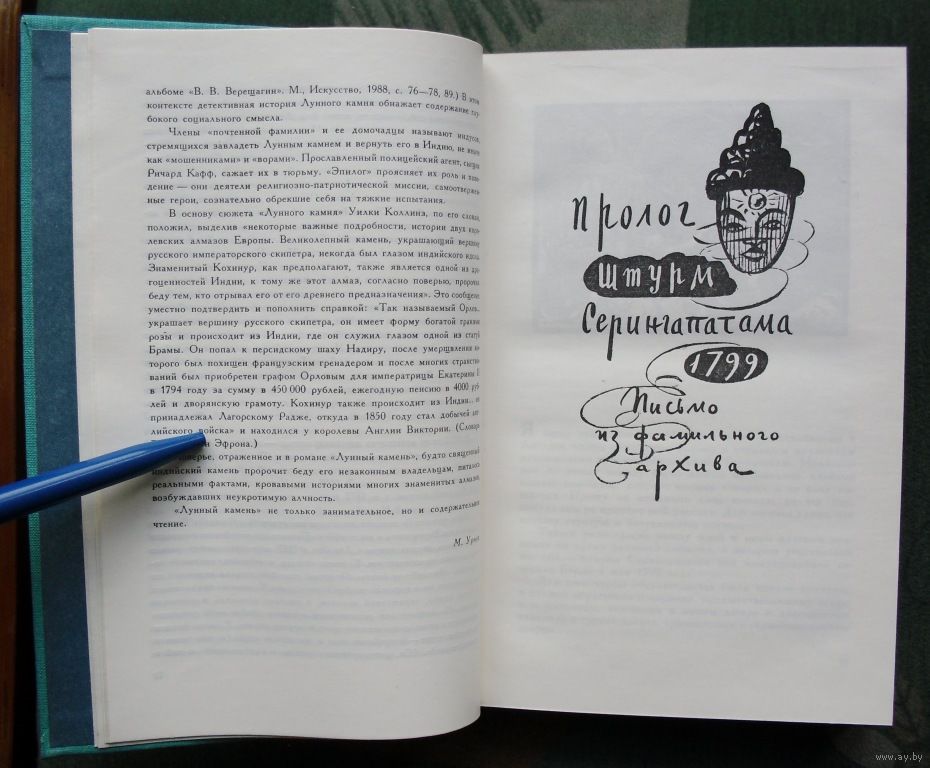 альбоме «В. В. Верещагин». М., Искусство, 1988, с. 76—78, 89.) В этом
контексте детективная история Лунного камня обнажает содержание глу-
бокого социального смысла.
Члены «почтенной фамилии» и ее домочадцы называют индусов,
стремящихся завладеть Лунным камнем и вернуть его в Индию, не иначе
как «мошенниками» и «ворами». Прославленный полицейский агент, сыщик
Ричард Кафф, сажает их в тюрьму. «Эпилог» проясняет их роль и пове-
дение — они деятели религиозно-патриотической миссии, самоотвержен-
ные герои, сознательно обрекшие себя на тяжкие испытания.
В основу сюжета «Лунного камня» Уилки Коллинз, по его словам,
положил, выделив «некоторые важные подробности, истории двух коро-
левских алмазов Европы. Великолепный камень, украшающий вершину
русского императорского скипетра, некогда был глазом индийского идола.
Знаменитый Кохинур, как предполагают, также является одной из дра-
гоценностей Индии, к тому же этот алмаз, согласно поверью, пророчил
беду тем, кто отрывал его от его древнего предназначения». Это сообщение
уместно подтвердить и пополнить справкой: «Так называемый Орлов...
украшает вершину русского скипетра, он имеет форму богатой граням
розы и происходит из Индии, где он служил глазом одной из статуй
Брамы. Он попал к персидскому шаху Надиру, после умерщвления ко-
торого был похищен французским гренадером и после многих странство-
ваний был приобретен графом Орловым для императрицы Екатерины II
в 1794 году за сумму в 450 000 рублей, ежегодную пенсию в 4000 руб-
лей и дворянскую грамоту. Кохинур также происходит из Индии...
принадлежал Лагорскому Радже, откуда в 1850 году стал добычей анг-
лийского войска» и находился у королевы Англии Виктории. (Словарь
и Эфрона.)
поверье, отраженное и в романе «Лунный камень», будто священный
индийский камень пророчит беду его незаконным владельцам, питалось
реальными фактами, кровавыми историями многих знаменитых алмазов,
возбуждавших неукротимую алчность.
«Лунный камень» не только занимательное, но и содержательное
чтение.
М. Урнов
Пролог
Штурм
Серингапатама
1799
Письмо
из фамильного
архива
www.ay.by